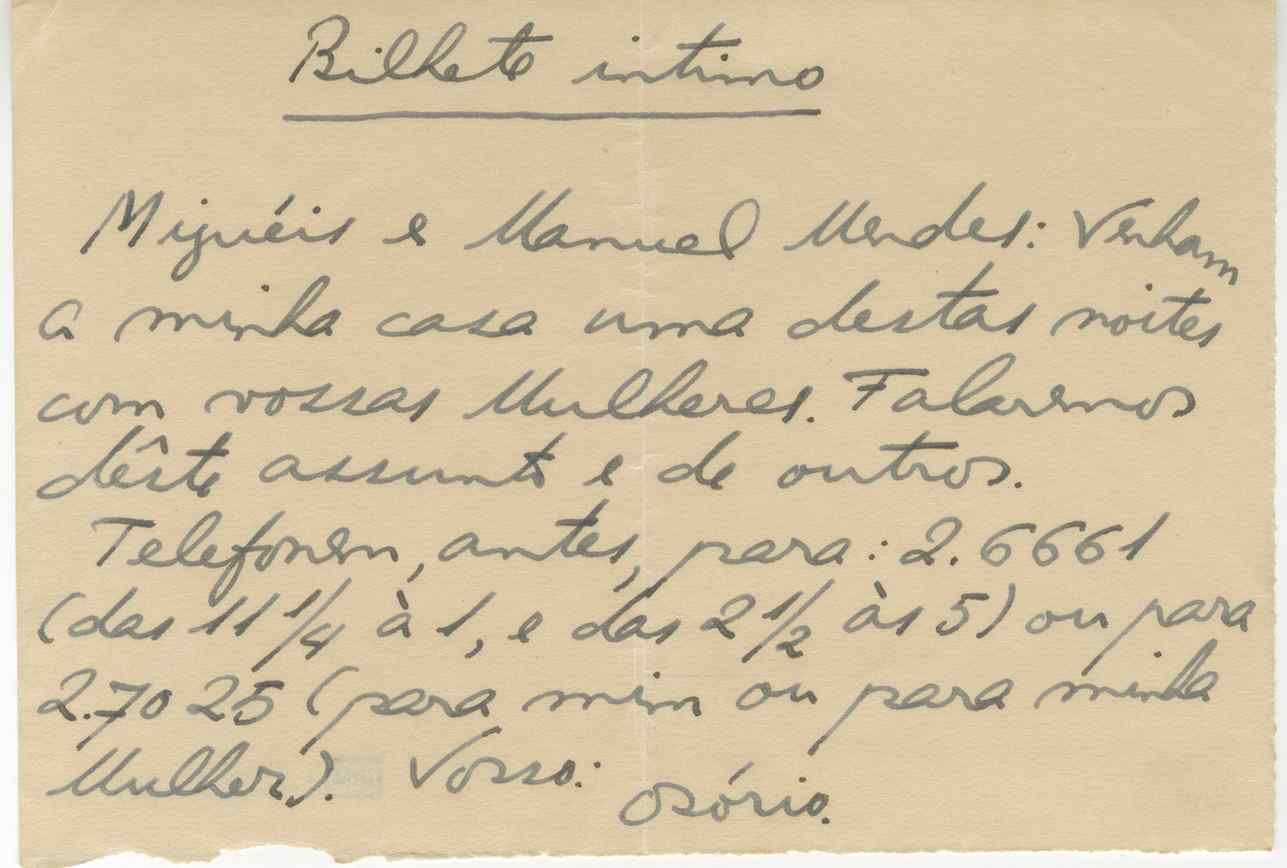 Bilhete intimo
Miguéis e Manuel Mendes: Venham
a minha casa uma destas noites
com vossas Mulheres. Falaremos
dêste assunto e de outros.
Telefonem, antes, para: 2.6661
(das 11 1/4 à 1, e das 2 1/2 às 5) ou para
2.7025 (para mim ou para minha
Mulher). Vosso:
Osório.